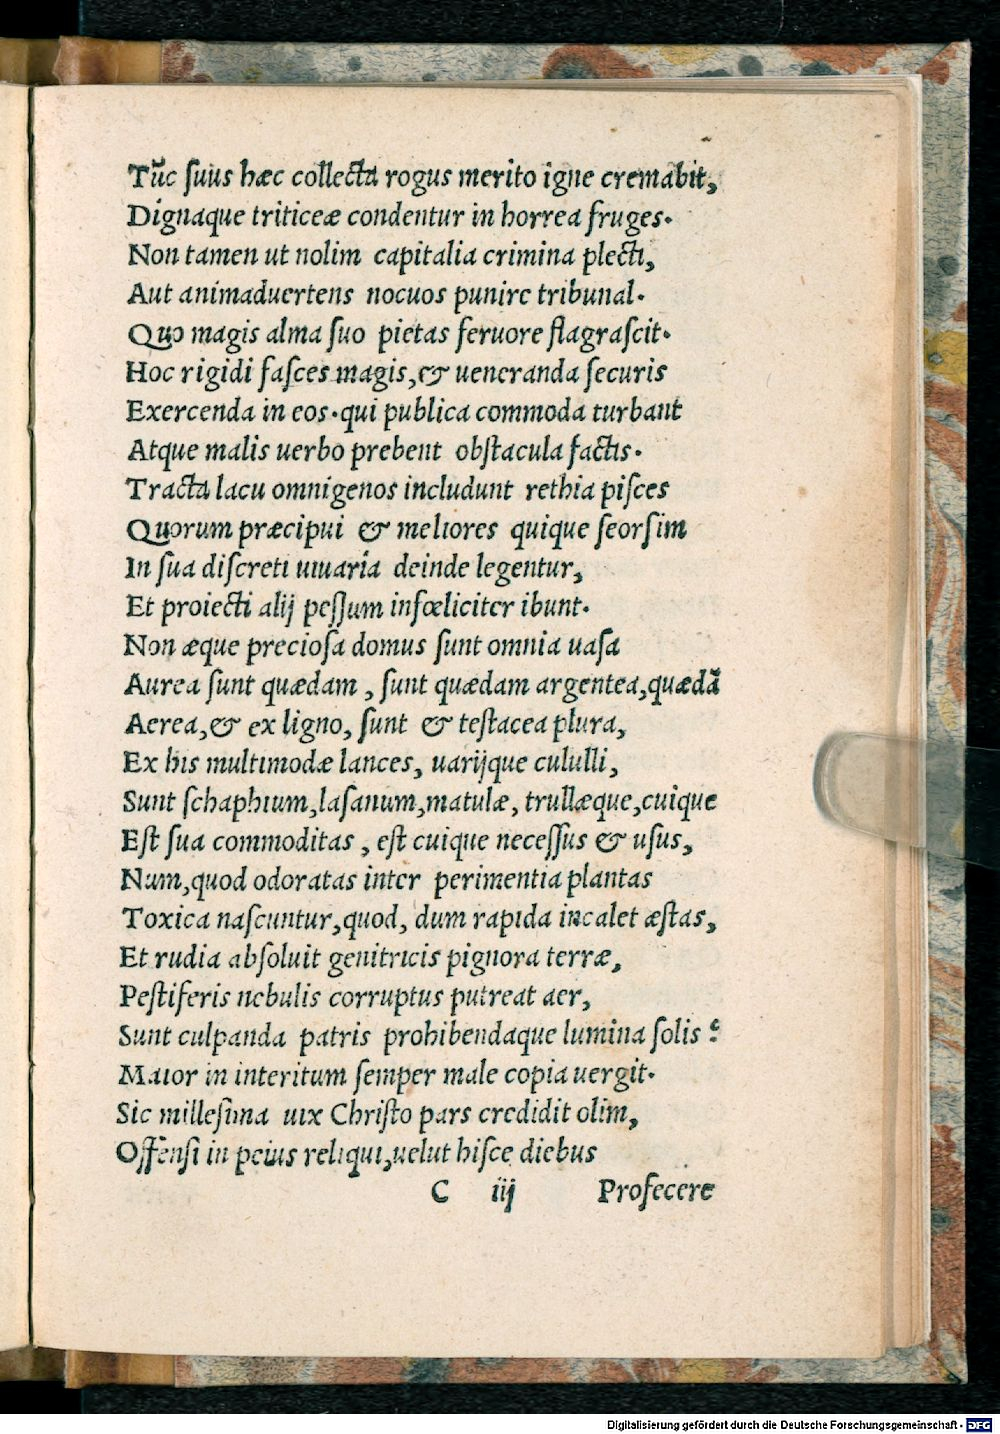 Tūc ſuus hæc collecta rogus merito igne cremabit,
Dignaque triticeæ condentur in horrea fruges.
Non tamen ut nolim capitalia crimina plecti,
Aut animaduertens nocuos punire tribunal.
Quo magis alma ſuo pietas feruore flagraſcit.
Hoc rigidi faſces magis,& ueneranda ſecuris
Exercenda in eos.qui publica commoda turbant
Atque malis uerbo prebent obſtacula factis.
Tracta lacu omnigenos includunt rethia piſces
Quorum præcipui & meliores quique ſeorſim
In ſua diſcreti uiuaria deinde legentur,
Et proiecti alij peſſum infœliciter ibunt.
Non æque precioſa domus ſunt omnia uaſa
Aurea ſunt quædam , ſunt quædam argentea,quædā
Aerea,& ex ligno, ſunt & teſtacea plura,
Ex his multimodæ lances, uarijque cululli,
Sunt ſchaphium,laſanum,matulæ, trullæque,cuique
Eſt ſua commoditas , eſt cuique neceſſus & uſus,
Num,quod odoratas inter perimentia plantas
Toxica naſcuntur,quod, dum rapida incalet æſtas,
Et rudia abſoluit genitricis pignora terræ,
Peſtiferis nebulis corruptus putreat aer,
Sunt culpanda patris prohibendaque lumina ſolis ?
Maior in interitum ſemper male copia uergit.
Sic milleſima uix Chriſto pars credidit olim,
Offenſi in peius reliqui,uelut hiſce diebus
C iij Profecere
Digitalisierung gefördert durch die Deutsche Forschungsgemeinschaft - DFG